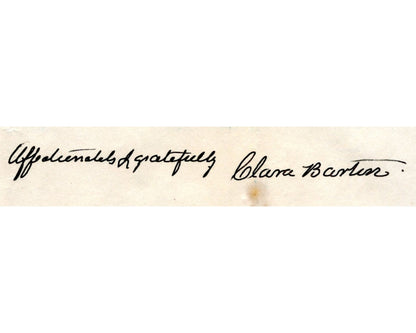 Affectionately & gratefully Clara Barton.